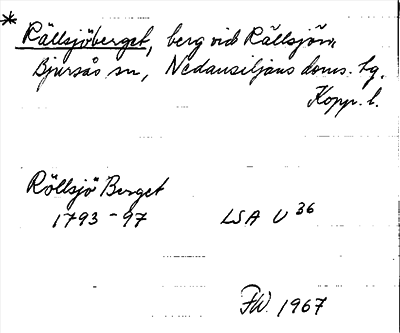 * Rällsjöberget, berg vid Rällsjön,
Bjursås sn, Nedansiljans doms. tg,
Kopp. l.
Röllsjö Berget
1793-97 LSA U 36
FW. 1967